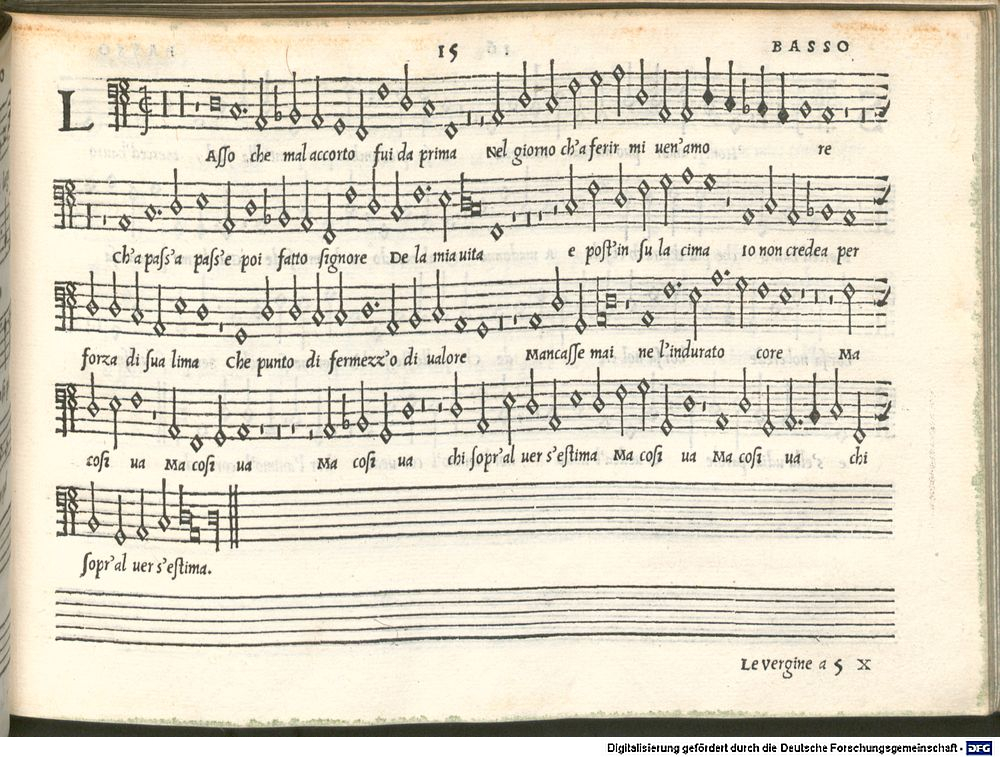 15 BASSO
L
Asso che mal accorto fui da prima Nel giorno ch'a ferir mi uen'amo re
Ch'a pass'a pass'e poi fatto signore De la mia uita e post'in su la cima Io non credea per
forza di sua lima Che punto di fermezz'o di ualore Mancasse mai ne l'indurato core Ma
cosi ua Ma cosi ua Ma cosi ua chi sopr'al uer s'estima Ma cosi ua Ma cosi ua chi
sopr'al uer s'estima.
Le vergine a 5 X
Digitalisierung gefördert durch die Deutsche Forschungsgemeinschaft - DFG